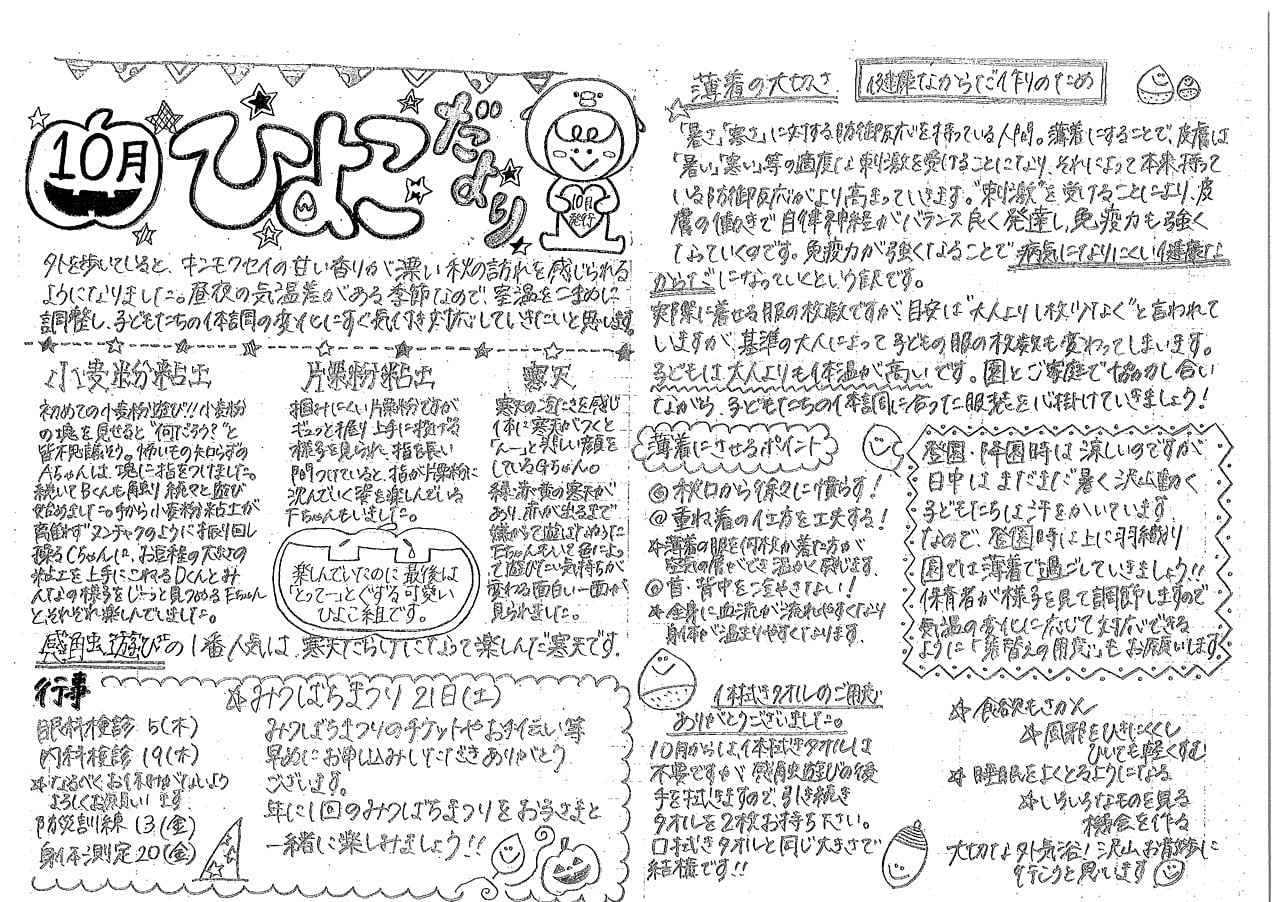 10月
ひよこだより
10月
発行
外を歩いていると、キンモクセイの甘い香りが漂い秋の訪れを感じられる
ようになりました。昼夜の気温差がある季節なので、室温をこまめに
調整し、子どもたちの体調の変化にすぐ気付き対応していきたいと思います。
小麦粉粘土
初めての小麦粉遊び!!小麦粉
の塊を見せると"何だろう?"と
皆不思議そう。怖いもの知らずの
Aちゃんは、塊に指をつけました。
続いてBくんも触り続々と遊び
始めました。手から小麦粉粘土が
離れず"ヌンチャクのように振り回し
操るCちゃんに、お豆程の大きさの
粘土を上手にこねるDくんとみ
んなの様子をじーっと見つめるEちゃん
とそれぞれ楽しんでいました。
片栗粉粘土
掴みにくい片栗粉ですが
ギュっと握り上手に投げる
様子を見られ、指を長い
間つけていると、指が片栗粉に
沈んでいく姿を楽しんでいる
Fちゃんもいました。
楽しんでいたのに最後は
「とってー」とぐずる可愛い
ひよこ組です。
寒天
寒天の冷たさを感じ
体に寒天がつくと
「んー」と美しい顔を
しているGちゃん。
緑・赤・黄の寒天が
あり、赤が出るまで
嫌がって遊ばなかった
Eちゃんもいて色によっ
て遊びたい気持ちが
変わる面白い一面が
見られました。
感触遊びの1番人気は、寒天だらけになって楽しんだ寒天です。
行事
眼科検診 5(木)
内科検診 19(木)
☆なるべくお休みがないよう
よろしくお願いします
防災訓練 13(金)
身体測定20(金)
☆みつばちまつり 21日(土)
みつばちまつりのチケットやお手伝い等
早めにお申し込みいただきありがとう
ございます。
年に1回のみつばちまつりをお子さまと
一緒に楽しみましょう!!
薄着の大切さ
健康なからだ作りのため
「暑さ」「寒さ」に対する防御反応を持っている人間。薄着にすることで、皮膚は
「暑い」「寒い」等の適度な刺激を受けることになり、それによって本来持って
いる防御反応がより高まっていきます。"刺激"を受けることにより、皮
膚の働きで自律神経がバランス良く発達し、免疫力も強く
なっていくのです。免疫力が強くなることで病気になりにくい健康な
からだになっていくという訳です。
実際に着せる服の枚数ですが、目安は"大人より1枚少なく"と言われて
いますが、基準の大人によって子どもの服の枚数も変わってしまいます。
子どもは大人よりも体温が高いです。園とご家庭で協力し合い
ながら、子どもたちの体調に合った服装を心掛けていきましょう!
薄着にさせるポイント
◎秋口から徐々に慣らす!
◎重ね着の仕方を工夫する!
☆薄着の服を何枚か着た方が
空気の層ができ温かく感じます。
◎首・背中を冷やさない!
☆全身に血流が流れやすくなり
身体が温まりやすくなります。
登園・降園時は涼しいのですが
日中はまだまだ暑く沢山動く
子どもたちは汗をかいています
なので、登園時は上に羽織り
園では薄着で過ごしていきましょう!!
保育者が様子を見て調節しますので
気温の変化に応じて対応できる
ように「着替えの用意」もお願いします
体拭きタオルのご用意
ありがとうございました。
10月からは、体拭きタオルは
不要ですが感触遊びの後
手を拭きますので、引き続き
タオルを2枚お持ち下さい。
口拭きタオルと同じ大きさで
結構です!!
☆食欲もさかん
☆風邪をひきにくくし
ひいても軽くすむ
☆睡眠をよくとるようになる
☆いろいろなものを見る
機会を作る
大切な外気浴!沢山お散歩に
行こうと思います